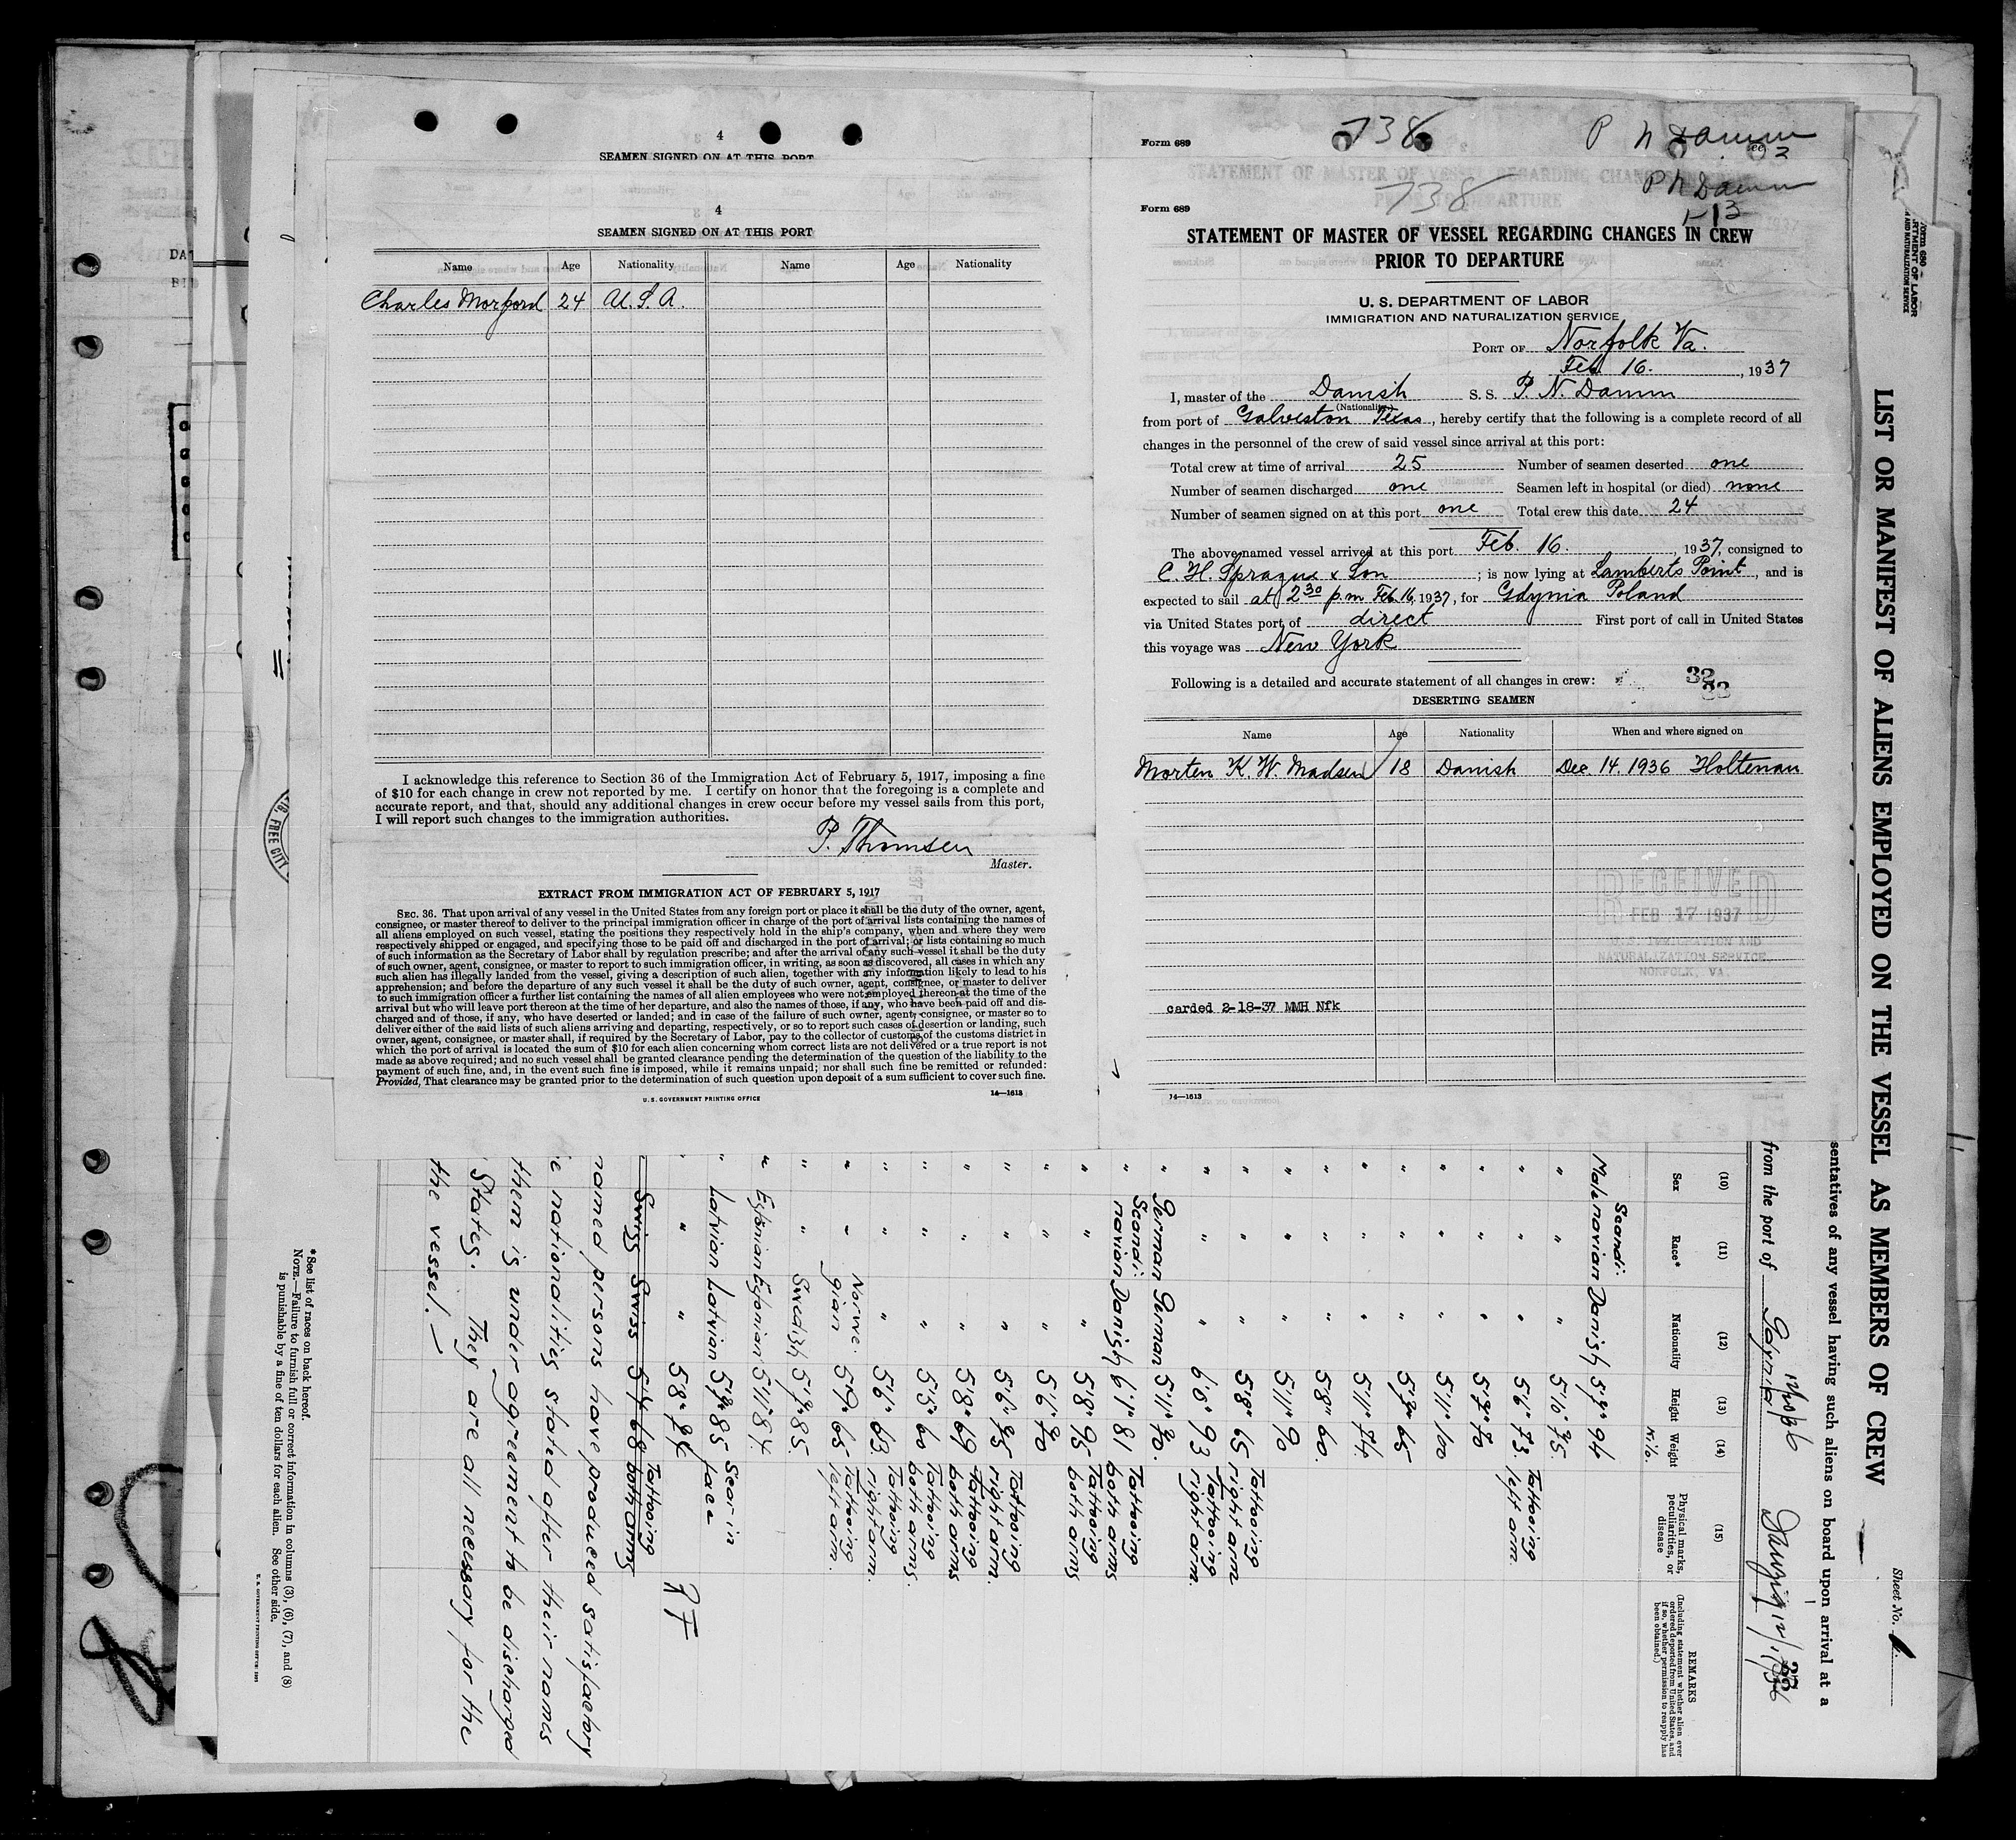 4
SEAMEN SIGNED ON AT THIS PORT
4
SEAMEN SIGNED ON AT THIS PORT
Name Age Nationality Name Age Nationality
Charles Morford 24 U.S.A.
I acknowledge this reference to Section 36 of the Immigration Act of February 5, 1917, imposing a fine
of $10 for each change in crew not reported by me. I certify on honor that the foregoing is a complete and
accurate report, and that, should any additional changes in crew occur before my vessel sails from this port,
I will report such changes to the immigration authorities.
P. Thomsen
Master.
EXTRACT FROM IMMIGRATION ACT OF FEBRUARY 5, 1917
SEC. 36. That upon arrival of any vessel in the United States from any foreign port or place it shall be the duty of the owner, agent,
consignee, or master thereof to deliver to the principal immigration officer in charge of the port of arrival lists containing the names of
all aliens employed on such vessel, stating the positions they respectively hold in the ship's company, when and where they were
respectively shipped or engaged, and specifying those to be paid off and discharged in the port of arrival; or lists containing so much
of such information as the Secretary of Labor shall by regulation prescribe; and after the arrival of any such vessel it shall be the duty
of such owner, agent, consignee, or master to report to such immigration officer, in writing, as soon as discovered, all cases in which any
such alien has illegally landed from the vessel, giving a description of such alien, together with any information likely to lead to his
apprehension; and before the departure of any such vessel it shall be the duty of such owner, agent, consignee, or master to deliver
to such immigration officer a further list containing the names of all alien employees who were not employed thereon at the time of the
arrival but who will leave port thereon at the time of her departure, and also the names of those, if any, who have been paid off and dis-
charged and of those, if any, who have deserted or landed; and in case of the failure of such owner, agent, consignee, or master so to
deliver either of the said lists of such aliens arriving and departing, respectively, or so to report such cases of desertion or landing, such
owner, agent, consignee, or master shall, if required by the Secretary of Labor, pay to the collector of customs of the customs district in
which the port of arrival is located the sum of $10 for each alien concerning whom correct lists are not delivered or a true report is not
made as above required; and no such vessel shall be granted clearance pending the determination of the question of the liability to the
payment of such fine, and, in the event such fine is imposed, while it remains unpaid; nor shall such fine be remitted or refunded:
Provided, That clearance may be granted prior to the determination of such question upon deposit of a sum sufficient to cover such fine.
U. S. GOVERNMENT PRINTING OFFICE 14—1613
Form 689 738 P N Damm
2
738 P N Damm
1-13
Form 689
STATEMENT OF MASTER OF VESSEL REGARDING CHANGES IN CREW
PRIOR TO DEPARTURE
U. S. DEPARTMENT OF LABOR
IMMIGRATION AND NATURALIZATION SERVICE
PORT OF Norfolk Va.
Feb. 16. , 1937
I, master of the Danish S. S. P. N. Damm
(Nationality)
from port of Galveston Texas, hereby certify that the following is a complete record of all
changes in the personnel of the crew of said vessel since arrival at this port:
Total crew at time of arrival 25 Number of seamen deserted one
Number of seamen discharged one Seamen left in hospital (or died) none
Number of seamen signed on at this port one Total crew this date 24
The above-named vessel arrived at this port Feb. 16. , 1937, consigned to
C. H. Sprague & Son ; is now lying at Lamberts Point, and is
expected to sail at 2 30 p m Feb. 16, 1937, for Gdynia Poland
via United States port of direct First port of call in United States
this voyage was New York
Following is a detailed and accurate statement of all changes in crew:
32
33
DESERTING SEAMEN
Name Age Nationality When and where signed on
Morten K. W. Madsen 18 Danish Dec. 14. 1936 Holtenau
RECEIVED
FEB 17 1937
U.S. IMMIGRATION AND
NATURALIZATION SERVICE
NORFOLK, VA.
carded 2-18-37 MMH Nfk
14—1613
LIST OR MANIFEST OF ALIENS EMPLOYED ON THE VESSEL AS MEMBERS OF CREW
Sheet No.
sentatives of any vessel having such aliens on board upon arrival at a
from the port of Gdynia Danzig
(10) (11) (12) (13) (14) (15)
Sex Race* Nationality Height Weight Physical marks, peculiarities, or disease
Kilo.
REMARKS
(Including statement whether alien ever
ordered deported from United States, and
if so, whether permission to reapply has
been obtained.)
Scandi.
Male navian Danish 5'7" 94
" " " 5'10" 75.
" " " 5'6" 73. Tattooing left arm
" " " 5'7" 70
" " " 5'11" 100
" " " 5'7" 65
" " " 5'11" 74.
" " " 5'8" 60.
" " " 5'11" 90
" " " 5'8" 65 Tattooing right arm
" " " 6'0" 93 Tattooing right arm.
" German German 5'11" 70.
" Scandi. navian Danish 6'1" 81 Tattooing both arms
" " " 5'8" 95 Tattooing both arms
" " " 5'6" 70
" " " 5'6" 75 Tattooing right arm.
" " " 5'8" 69 Tattooing both arms
" " " 5'5" 60 Tattooing both arms.
" " " 5'6" 63 Tattooing right arm.
" " Norwe. gian 5'9" 65 Tattooing left arm.
" " Swedish 5'7" 85.
" Estonian Estonian 5'11" 84.
" Latvian Latvian 5'7" 85 Scar in face
" " " 5'8"
Swiss Swiss 5'4" 68 Tattooing both arms
named persons have produced satisfactory
e nationalities stated after their names
them is under agreement to be discharged
States. They are all necessary for the
the vessel. —
*See list of races on back hereof.
NOTE.—Failure to furnish full or correct information in columns (3), (6), (7), and (8)
is punishable by a fine of ten dollars for each alien. See other side.
FREE CITY